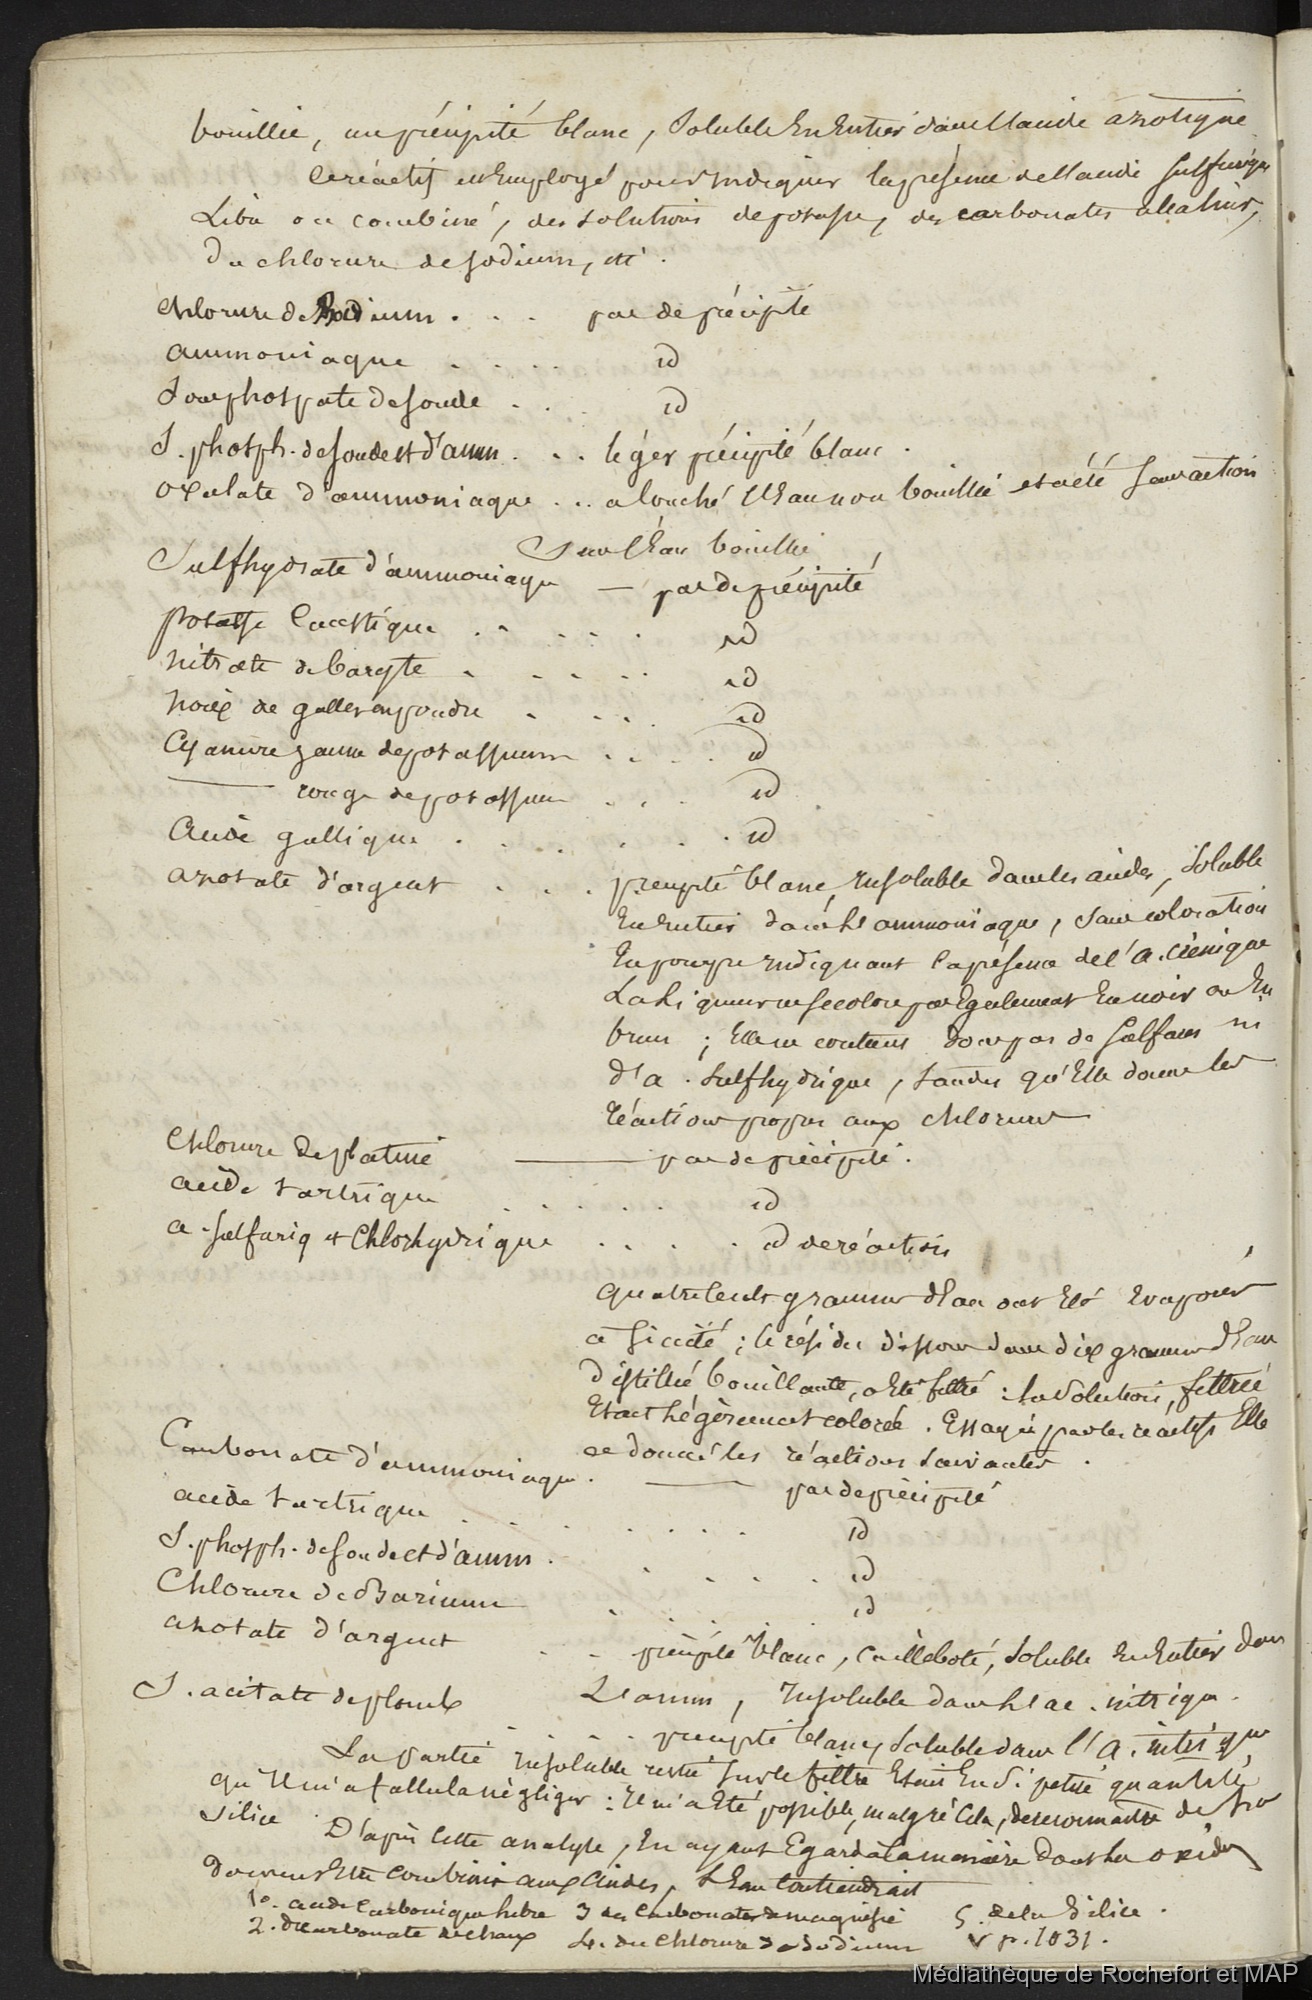 bouillie, un précipité blanc, soluble en entier dans l'acide azotique
ce réactif est employé pour indiquer la présence de l'acide sulfurique
Libre ou combiné, des solutions de potasse, des carbonates alcalins,
du chlorure de sodium, etc.
Chlorure de Rodium . . . pas de précipité
ammoniaque . . . . id
Sousphospate de soude . . . id
S. phosph. de soude et d'amm . . . léger précipité blanc.
oxalate d'ammoniaque . . . a louché l'Eau non bouillie et a été sans action
Sur l'Eau bouillie
Sulfhydrate d'ammoniaque — pas de précipité
potasse Caustique . . . . . id
nitrate de baryte . . . . . id
noix de galles en poudre . . . . id
Cyanure jaune de potassium . . . . id
— rouge de potassium . . . id
Acide gallique . . . . . . . id
azotate d'argent . . . . précipité blanc, Insoluble dans les acides, soluble
En Entier dans l'ammoniaque, sans coloration
En pourpre Indiquant la présence de l'a. crénique
La Liqueur ne se colore pas Egalement En noir ou En
brun ; Elle ne contient donc pas de sulfures ni
d'a. sulfhydrique, tandis qu'Elle donne les
réactions propres aux chlorures
Chlorure de platine — pas de précipité.
acide tartrique . . . . . id
a. sulfuriq et Chlorhydrique . . . . id de réaction
quatre Cents grammes d'Eau ont Eté Evaporés
a siccité ; le résidu dissous dans dix grammes d'Eau
distillée bouillante, a Eté filtré : la solution, filtrée
Etait Légèrement colorée. Essayée par les réactifs Elle
a donné les réactions suivantes.
Carbonate d'ammoniaque. — pas de précipité
acide tartrique . . . . . . . id
S. phosph. de soude et d'amm . . . . . id
Chlorure de Barium . . . . . id
azotate d'argent . . précipité blanc, Cailleboté, soluble En Entier dans
L'amm, Insoluble dans l'ac. nitrique.
S. acétate de plomb . . . . précipité blanc, soluble dans l'a. nitrique
La partie insoluble restée sur le filtre Etait En si petite quantité,
qu'Il m'a fallu la négliger : Il m'a Eté possible, malgré Cela, de reconnaitre de la
silice. D'après Cette analyse, En ayant Egard à la manière dont les oxides
doivent Etre Combinés aux acides, L'Eau Contiendrait
1°. acide Carbonique Libre 3 des Carbonates de magnésie 5. de la Silice.
2. du carbonate de chaux 4. du Chlorure de sodium V p. 1031.
Médiathèque de Rochefort et MAP